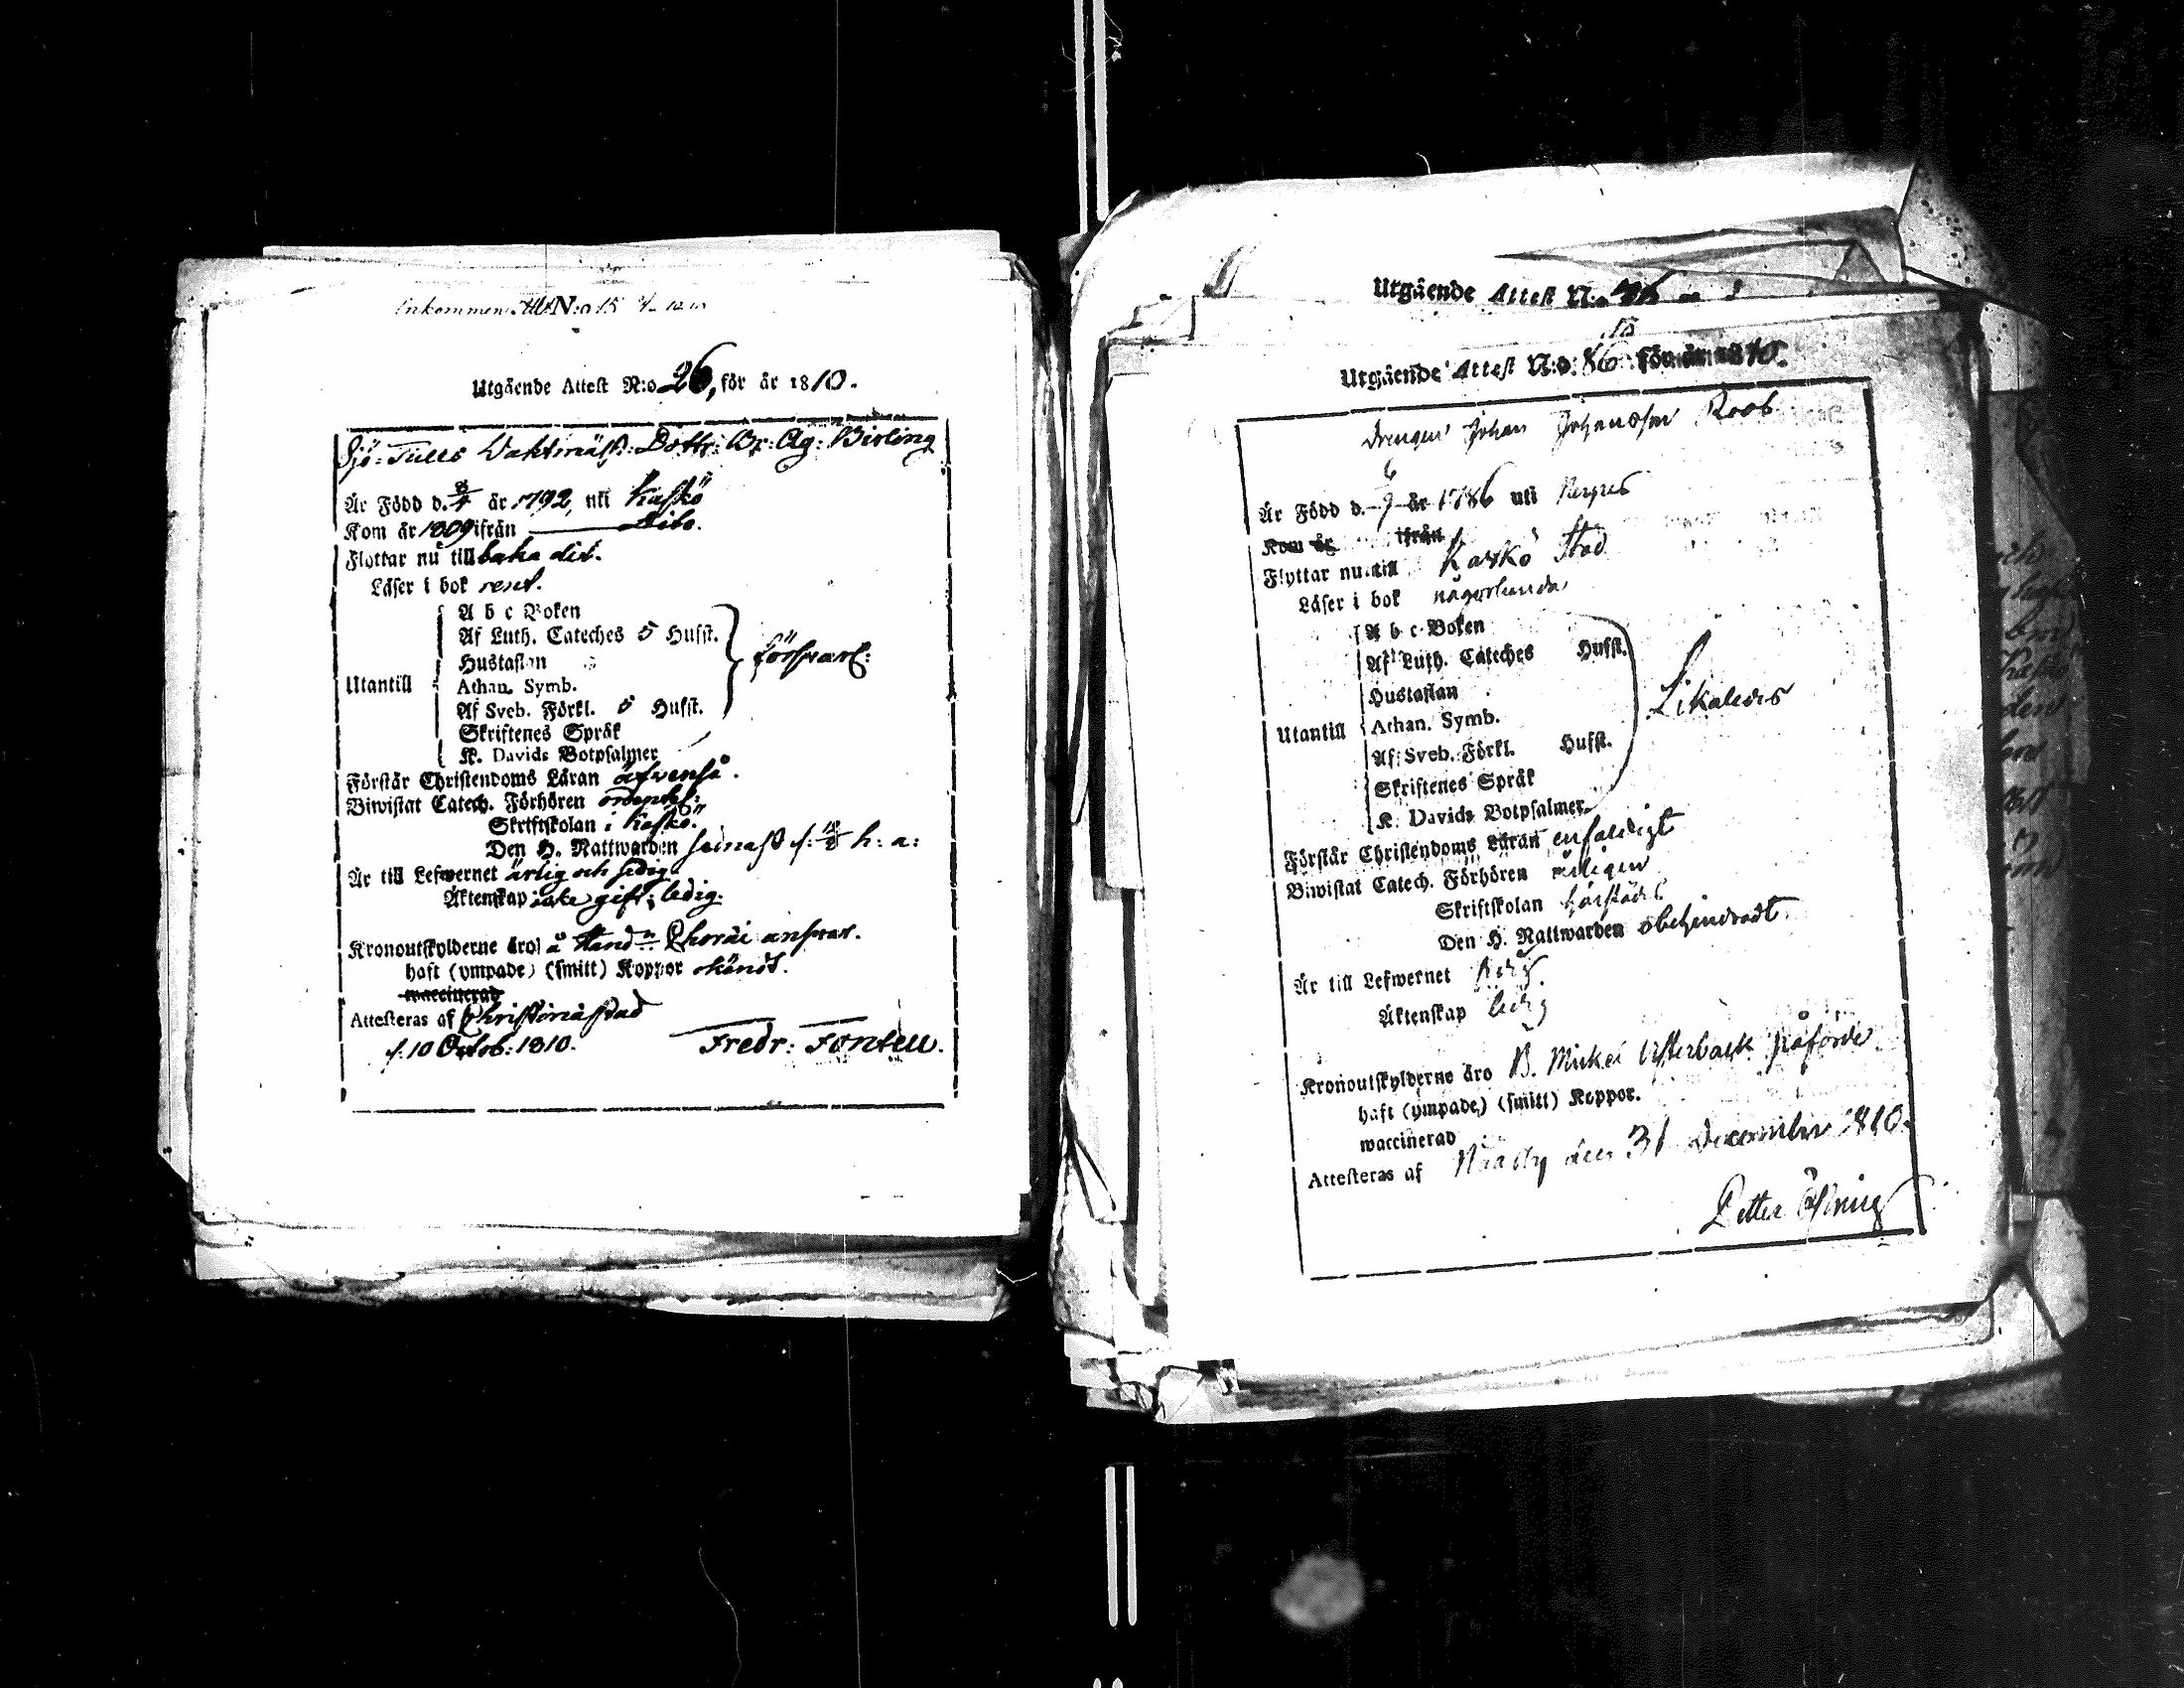 Inkommen Att. N:o 15
Utgående Attest N:o 26, för år 1810.
Sjö: Tulls Vaktmäst: Dottr: Br: Ag: Birling
Är Född d. 8/4 år 1792, uti Kaskö
Kom år 1809 ifrån Dito.
Flyttar nu till baka dit.
Läser i bok rent.
A b c Boken
Af Luth. Cateches 5 Hufst.
Hustaflan
försvarl:
Utantill
Athan. Symb.
Af Sveb. Förkl. 5 Hufst.
Skriftenes Språk
K. Davids Botpsalmer
Förstår Christendoms Läran äfvenså.
Biwistat Catech. Förhören ordentel:
Skriftskolan i Kaskö.
Den H. Nattwarden senast d: h: a:
Är till Lefwernet ärlig och sedig
Äktenskap icke gift; ledig.
Kronoutskylderne äro å Hand:n Choræi ansvar.
haft (ympade) (smitt) Koppor okändt.
waccinerad
Attesteras af Christinæstad
d. 10 Octob: 1810. Fredr: Fontell.
Utgående Attest N:o
Utgående Attest N:o 86 för år 1810.
Drengen Johan Johansson Roos
Är Född d. 6/9 år 1786 uti Nerpes
Kom år ifrån
Flyttar nu till Kaskö Stad
Läser i bok någorlunda
A b c Boken
Af Luth. Cateches Hufst.
Hustaflan
Likaledes
Utantill
Athan. Symb.
Af Sveb. Förkl. Hufst.
Skriftenes Språk
K. Davids Botpsalmer
Förstår Christendoms Läran enfaldigt
Biwistat Catech. Förhören
Skriftskolan härstädes
Den H. Nattwarden obehindradt
Är till Lefwernet sedig.
Äktenskap ledig
Kronoutskylderne äro B. Mickel påförde
haft (ympade) (smitt) Koppor.
waccinerad
Attesteras af den 31 December 1810.
Petter